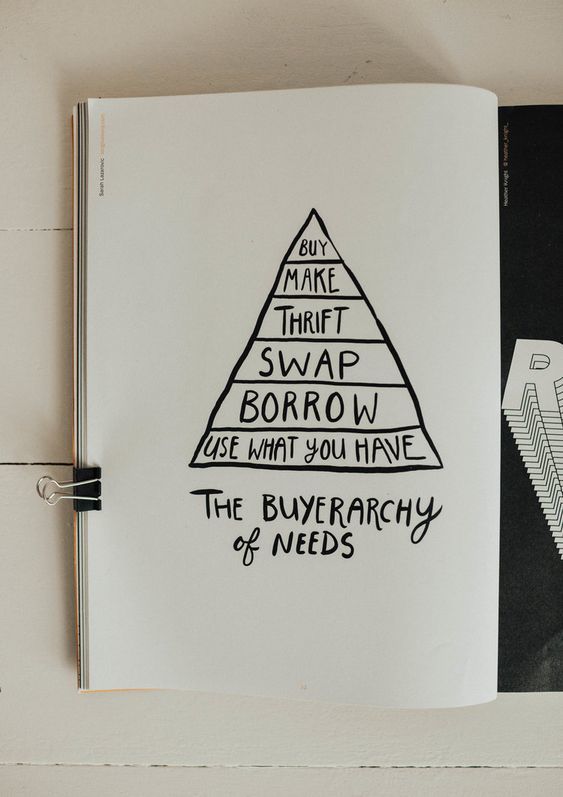 BUY
MAKE
THRIFT
SWAP
BORROW
USE WHAT YOU HAVE
THE BUYERARCHY
of NEEDS
Sarah Lazarovic
Heather Knight